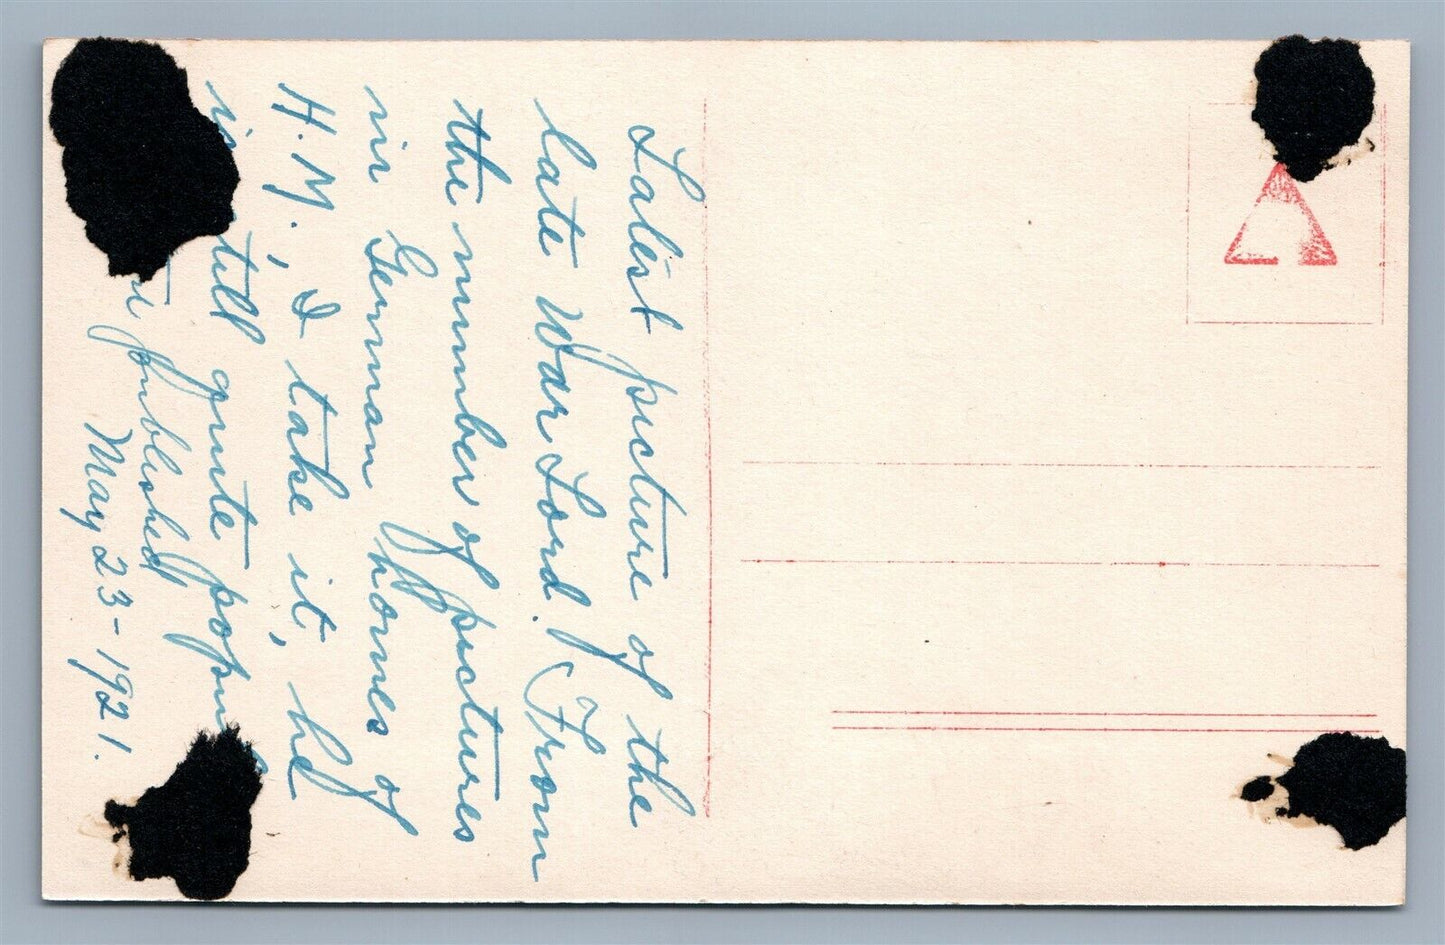 Latest picture of the
late War Lord. From
the number of pictures
in German homes of
H. M., I take it, he
is still quite popu
published
May 23-1921.